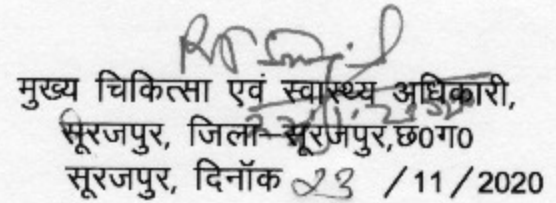 मुख्य चिकित्सा एवं स्वास्थ्य अधिकारी,
सूरजपुर, जिला-सूरजपुर,छ0ग0
सूरजपुर, दिनॉक 23 /11/2020